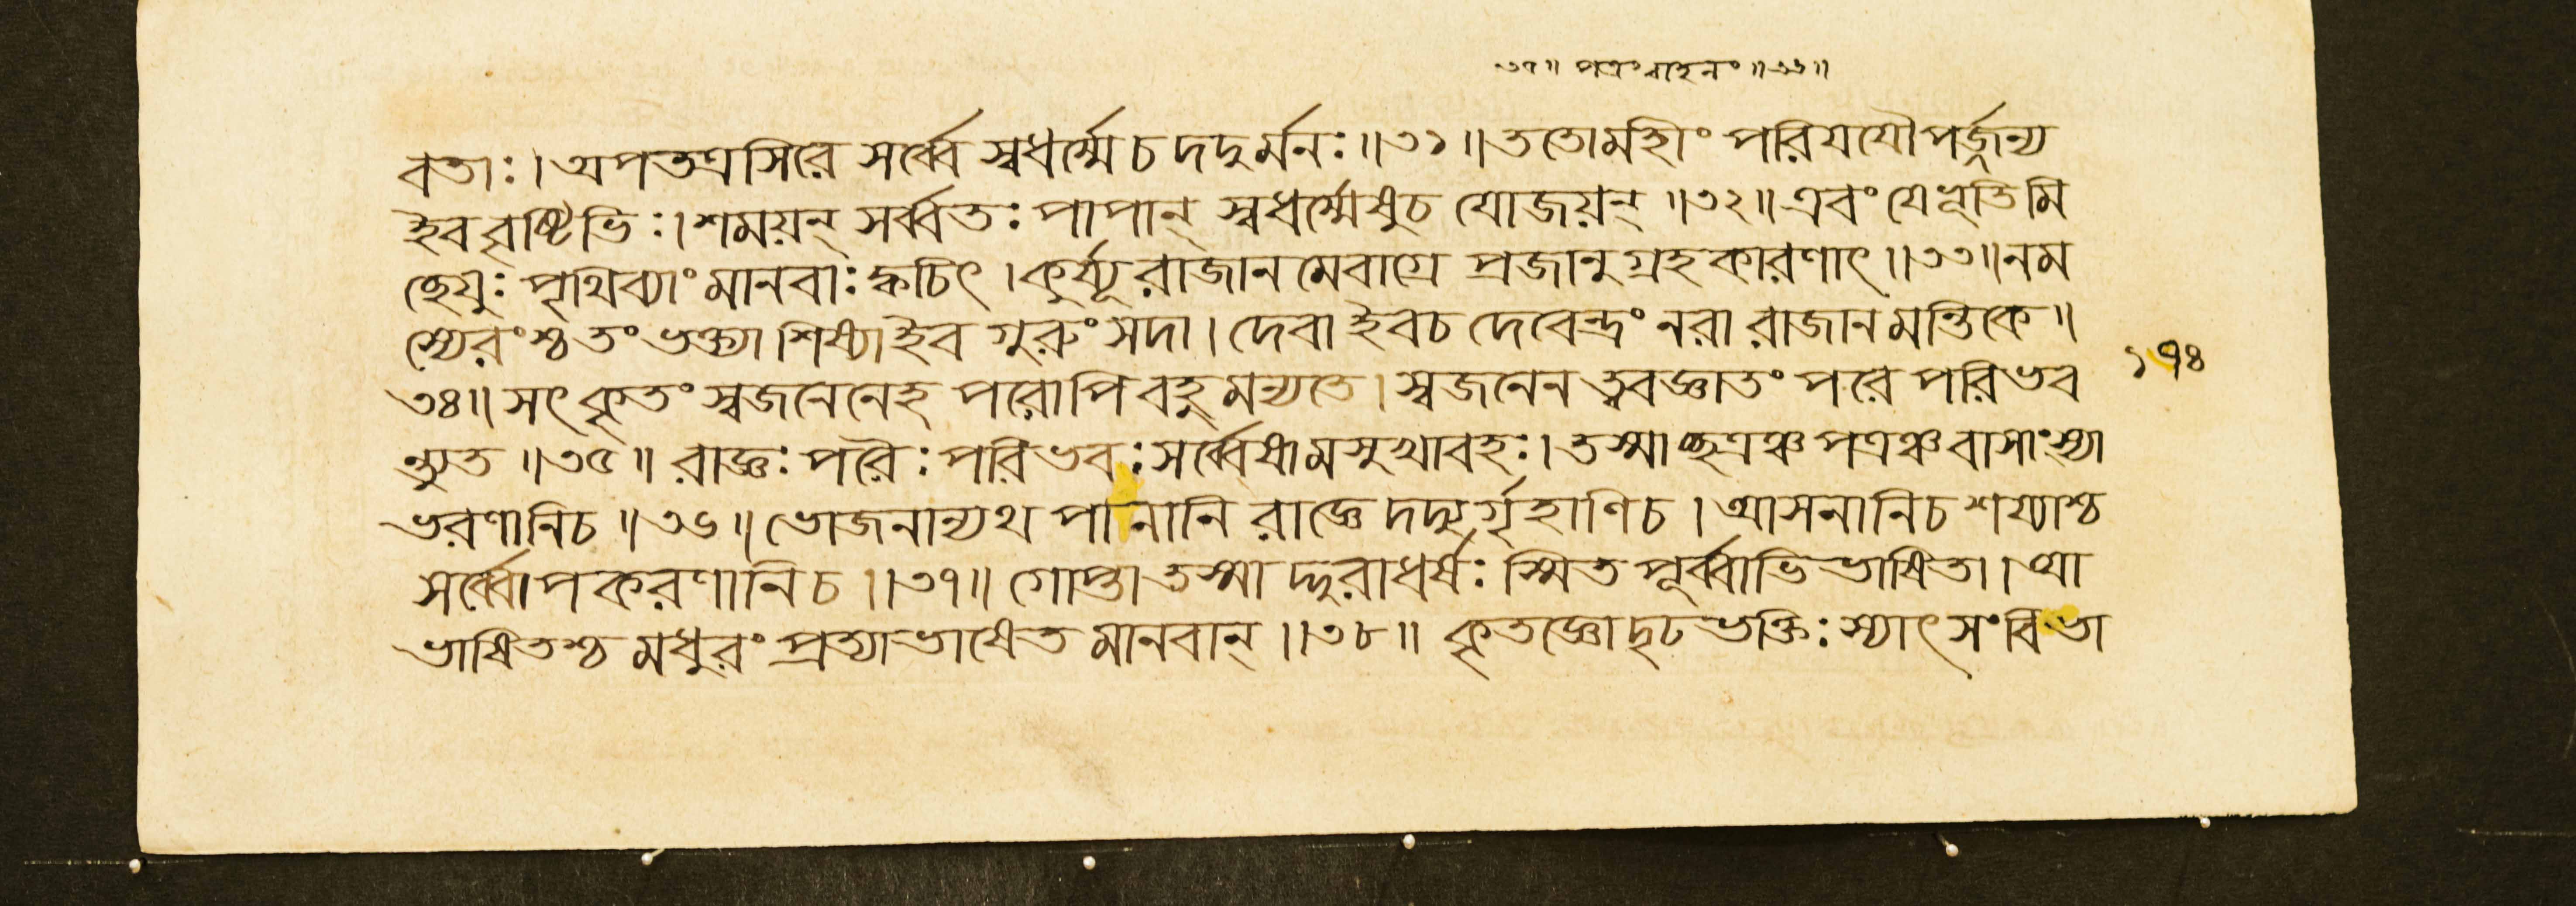 ৩৭॥ পত্রং বাহনং ॥৩৬॥
বতাঃ। অপতত্রসিরে সর্ব্বে স্বধর্ম্মে চ দদুর্মনঃ ॥৩১॥ ততোমহীং পরিযযৌ পর্জ্জন্য
ইব বৃষ্টিভিঃ। শময়ন্ সর্ব্বতঃ পাপান্ স্বধর্ম্মেষুচ যোজয়ন্ ॥৩২॥ এবং যে ভূতিমি
চ্ছেযুঃ পৃথিব্যাং মানবাঃ ক্বচিৎ। কুর্য্যূ রাজানমেবাগ্রে প্রজানুগ্রহকারণাৎ ॥৩৩॥ নম
স্যেরংশ্চ তং ভক্ত্যা শিষ্যাইব গুরুং সদা। দেবা ইবচ দেবেন্দ্রং নরা রাজানমন্তিকে॥
৩৪॥ সৎকৃতং স্বজনেনেহ পরোপি বহু মন্যতে। স্বজনেন ত্ববজ্ঞাতং পরে পরিভব
ন্ত্যুত ॥৩৫॥ রাজ্ঞঃ পরৈঃ পরিভবঃ সর্ব্বেষামসুখাবহঃ। তস্মাচ্ছত্রঞ্চ পত্রঞ্চ বাসাংস্যা
ভরণানিচ ॥৩৬॥ ভোজনান্যথ পানানি রাজ্ঞে দদ্যুর্গৃহাণিচ। আসনানিচ শয্যাশ্চ
সর্ব্বোপকরণানিচ ॥৩৭॥ গোপ্তা তস্মাদ্দুরাধর্ষঃ স্মিতপূর্ব্বাভিভাষিতা। আ
ভাষিতশ্চ মধুরং প্রত্যাভাষেত মানবান্ ॥৩৮॥ কৃতজ্ঞো দৃঢভক্তিঃ স্যাৎ সংবিভা
১৭৪